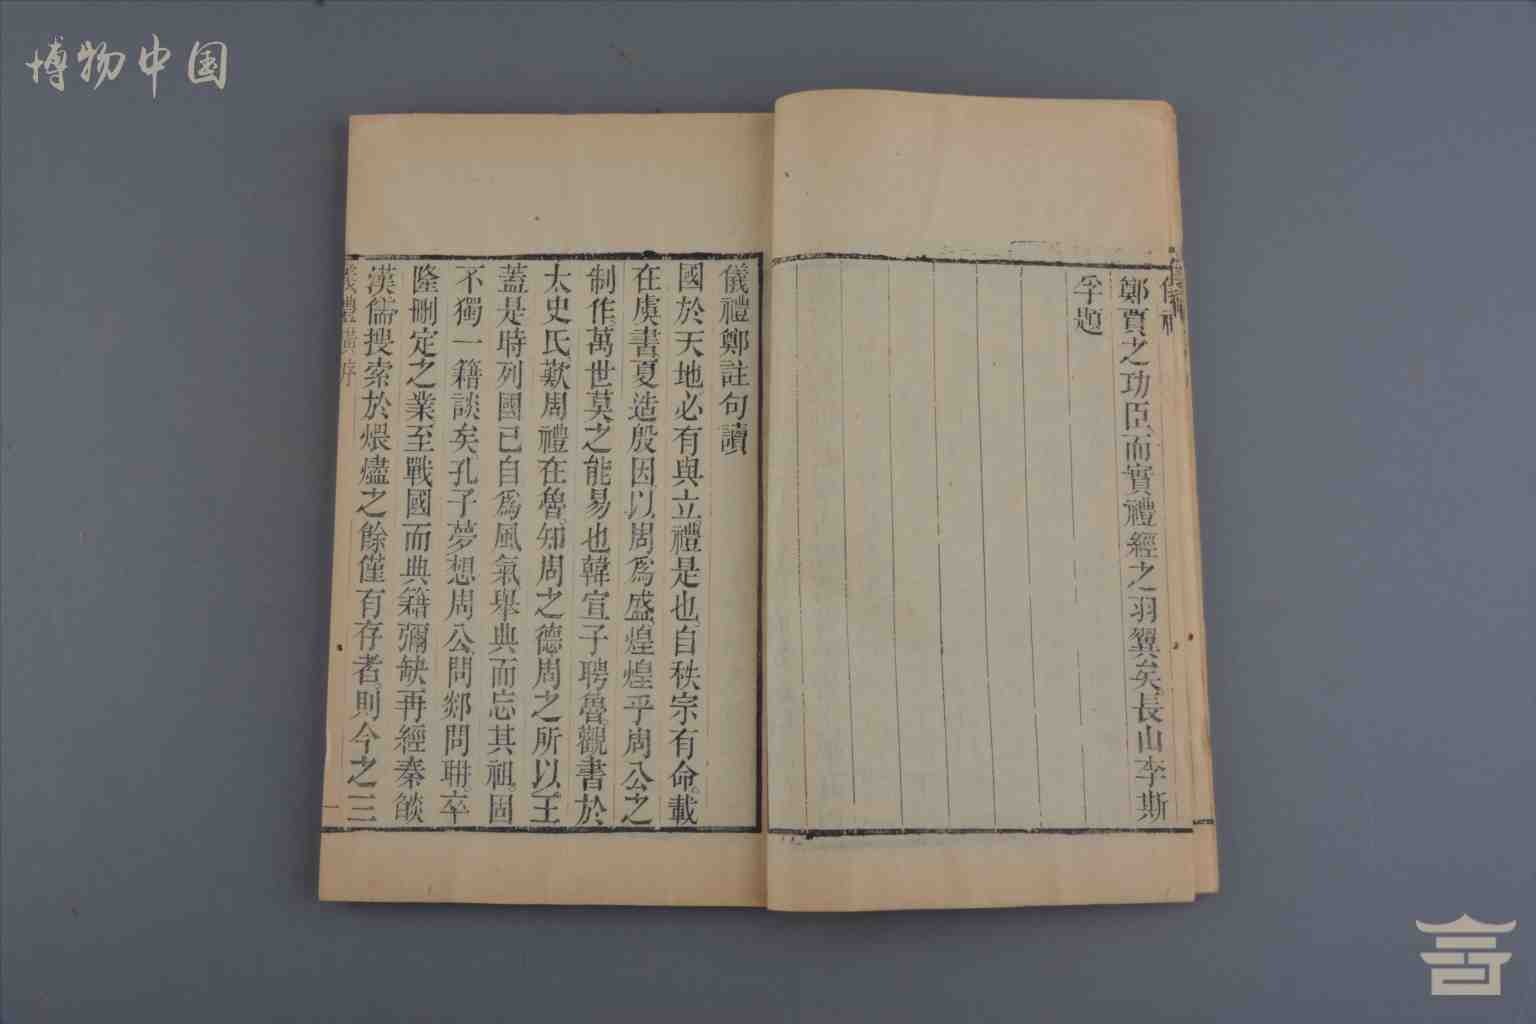 博物中国
鄭賈之功臣而實禮經之羽翼矣長山李斯
孚題
儀禮鄭註句讀
國於天地必有與立禮是也自秩宗有命載
在虞書夏造殷因以周爲盛煌煌乎周公之
制作萬世莫之能易也韓宣子聘魯觀書於
太史氏歎周禮在魯知周之德周之所以王
蓋是時列國已自爲風氣舉典而忘其祖固
不獨一籍談矣孔子夢想周公問郯問聃卒
隆刪定之業至戰國而典籍彌缺再經秦燄
漢儒搜索於煨燼之餘僅有存者則今之三
一